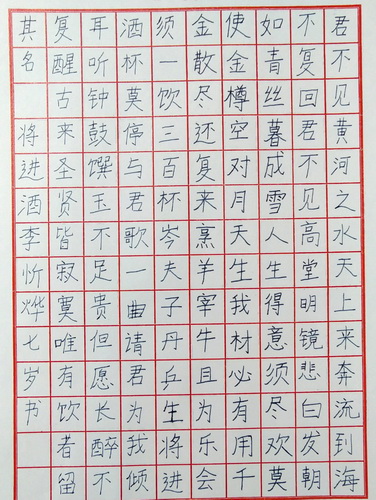 君不见黄河之水天上来奔流到海
不复回君不见高堂明镜悲白发朝
如青丝暮成雪人生得意须尽欢莫
使金樽空对月天生我材必有用千
金散尽还复来烹羊宰牛且为乐会
须一饮三百杯岑夫子丹乒生将进
酒杯莫停与君歌一曲请君为我倾
耳听钟鼓馔玉不足贵但愿长醉不
复醒古来圣贤皆寂寞唯有饮者留
其名 将进酒李忻烨七岁书